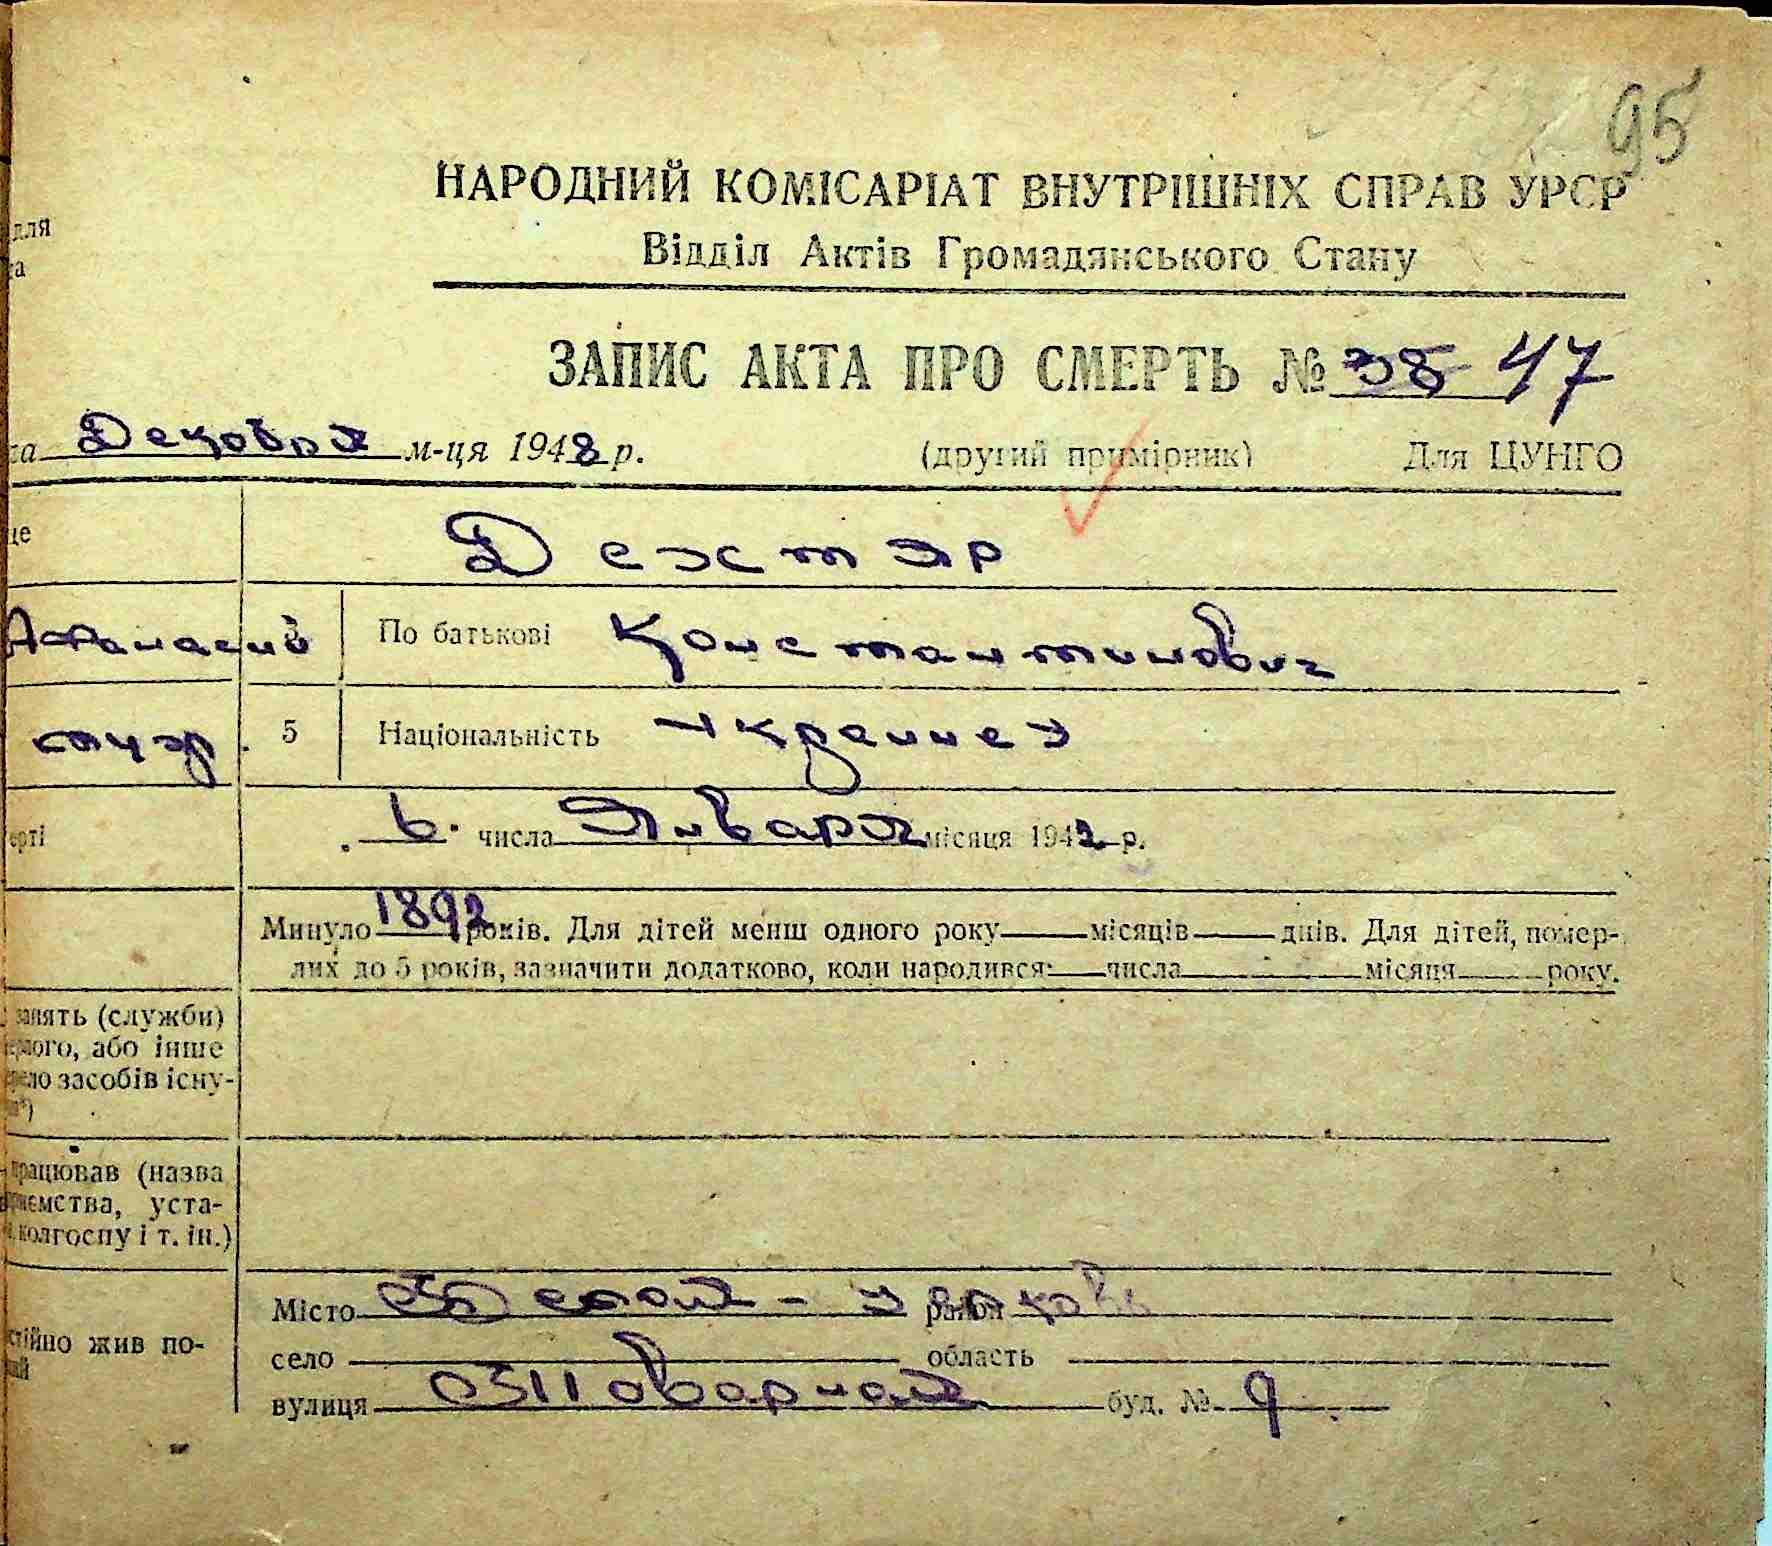 95
НАРОДНИЙ КОМІСАРІАТ ВНУТРІШНІХ СПРАВ УРСР
для
та
Відділ Актів Громадянського Стану
ЗАПИС АКТА ПРО СМЕРТЬ № 38 47
Декабря м-ця 1943 р. (другий примірник) Для ЦУНГО
ще
Дехтяр
Афанасий По батькові Константинович
муж. 5 Національність Украинец
ерті 6. числа Января місяця 1942 р.
Минуло 1892 років. Для дітей менш одного року місяців днів. Для дітей, помер-
лих до 5 років, зазначити додатково, коли народився: числа місяця року.
занять (служби)
ерлого, або інше
ело засобів існу-
працював (назва
ємства, уста-
колгоспу і т. ін.)
Місто Белая-Церковь район
стійно жив по-
село область
вулиця Базарная буд. № 9